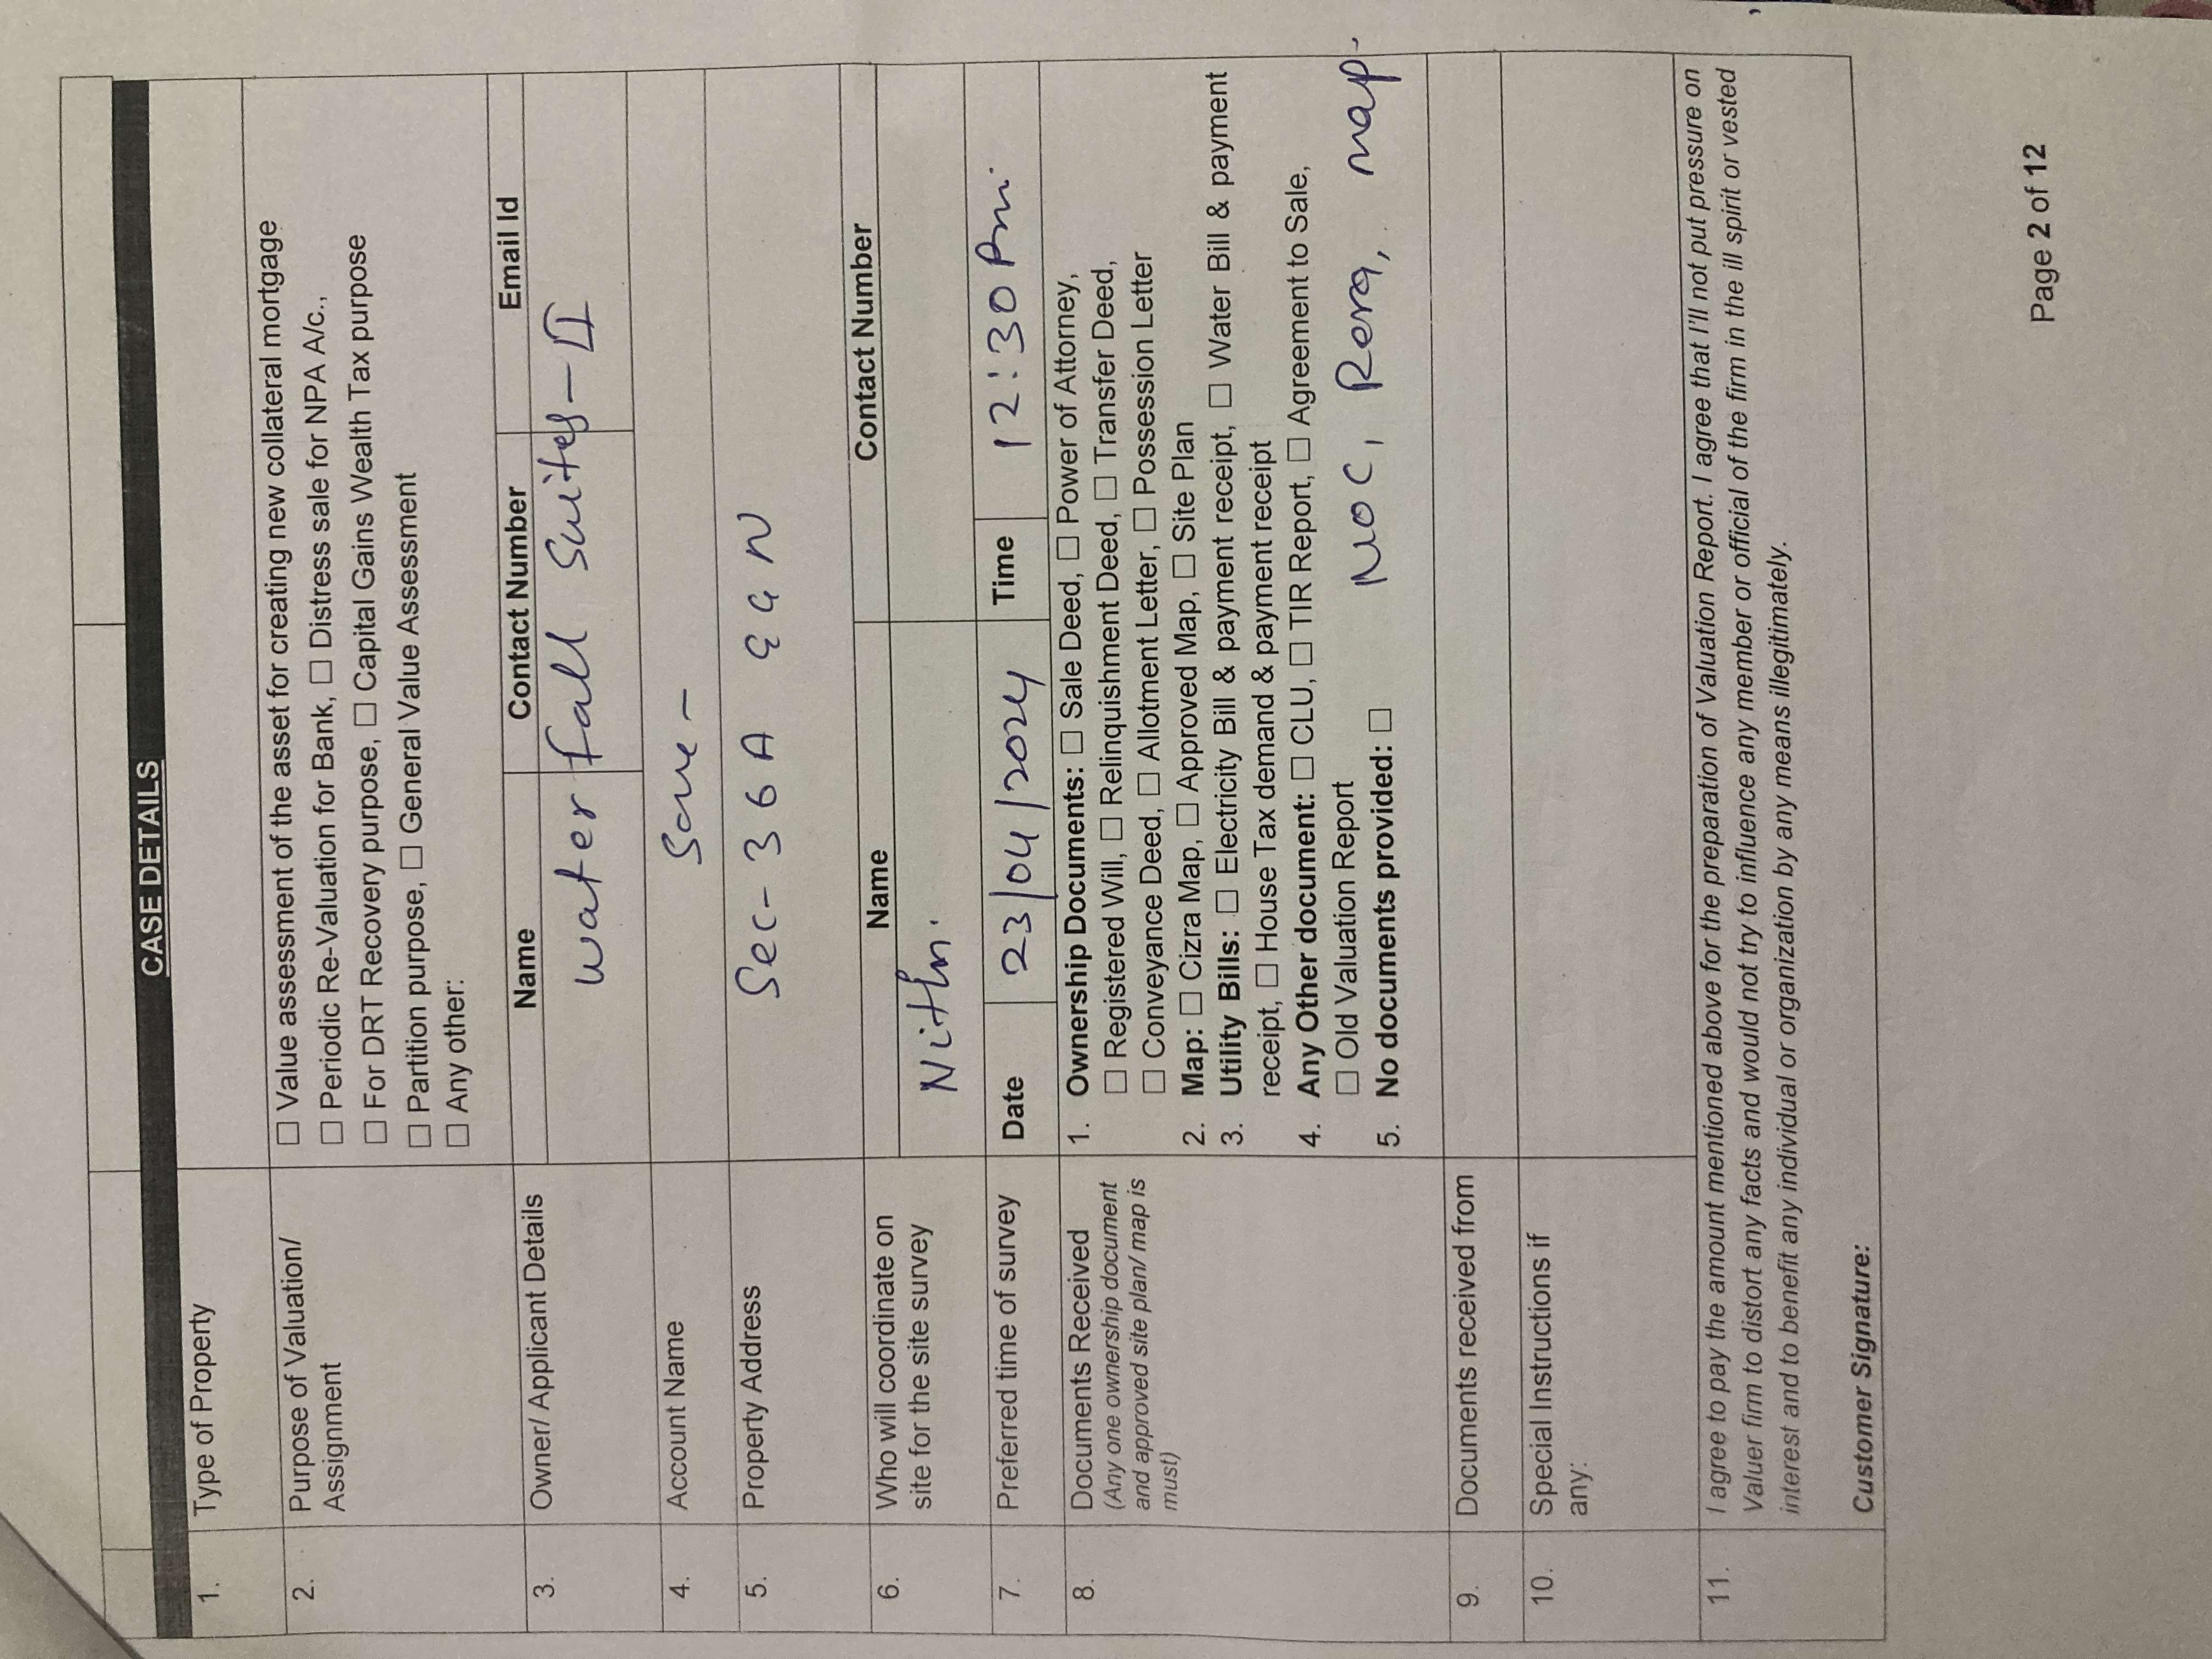 CASE DETAILS
1. Type of Property
2. Purpose of Valuation/ Assignment
☐ Value assessment of the asset for creating new collateral mortgage
☐ Periodic Re-Valuation for Bank, ☐ Distress sale for NPA A/c.,
☐ For DRT Recovery purpose, ☐ Capital Gains Wealth Tax purpose
☐ Partition purpose, ☐ General Value Assessment
☐ Any other:
3. Owner/ Applicant Details
Name Contact Number Email Id
water fall Suites-II
4. Account Name
Same -
5. Property Address
Sec-36A GGN
6. Who will coordinate on
site for the site survey
Name Contact Number
Nithn.
7. Preferred time of survey
Date 23/04/2024 Time 12:30 Pm.
8. Documents Received
(Any one ownership document
and approved site plan/ map is
must)
1. Ownership Documents: ☐ Sale Deed, ☐ Power of Attorney,
☐ Registered Will, ☐ Relinquishment Deed, ☐ Transfer Deed,
☐ Conveyance Deed, ☐ Allotment Letter, ☐ Possession Letter
2. Map: ☐ Cizra Map, ☐ Approved Map, ☐ Site Plan
3. Utility Bills: ☐ Electricity Bill & payment receipt, ☐ Water Bill & payment
receipt, ☐ House Tax demand & payment receipt
4. Any Other document: ☐ CLU, ☐ TIR Report, ☐ Agreement to Sale,
☐ Old Valuation Report
NOC, Rera, map-
5. No documents provided: ☐
9. Documents received from
10. Special Instructions if
any:
11. I agree to pay the amount mentioned above for the preparation of Valuation Report. I agree that I'll not put pressure on
Valuer firm to distort any facts and would not try to influence any member or official of the firm in the ill spirit or vested
interest and to benefit any individual or organization by any means illegitimately.
Customer Signature:
Page 2 of 12